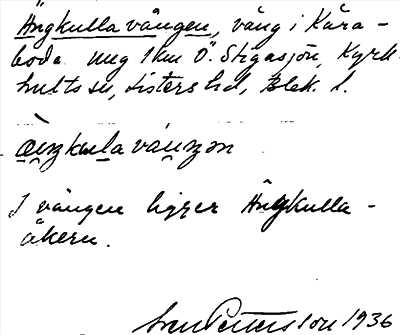 Ängkulla vången, vång i Kåra-
boda. meg 1 km Ö. Stigasjön, Kyrk-
hults sn, Listers hd, Blek. l.
I vången ligger Ängkulla-
åkern.
Sven Pettersson 1936